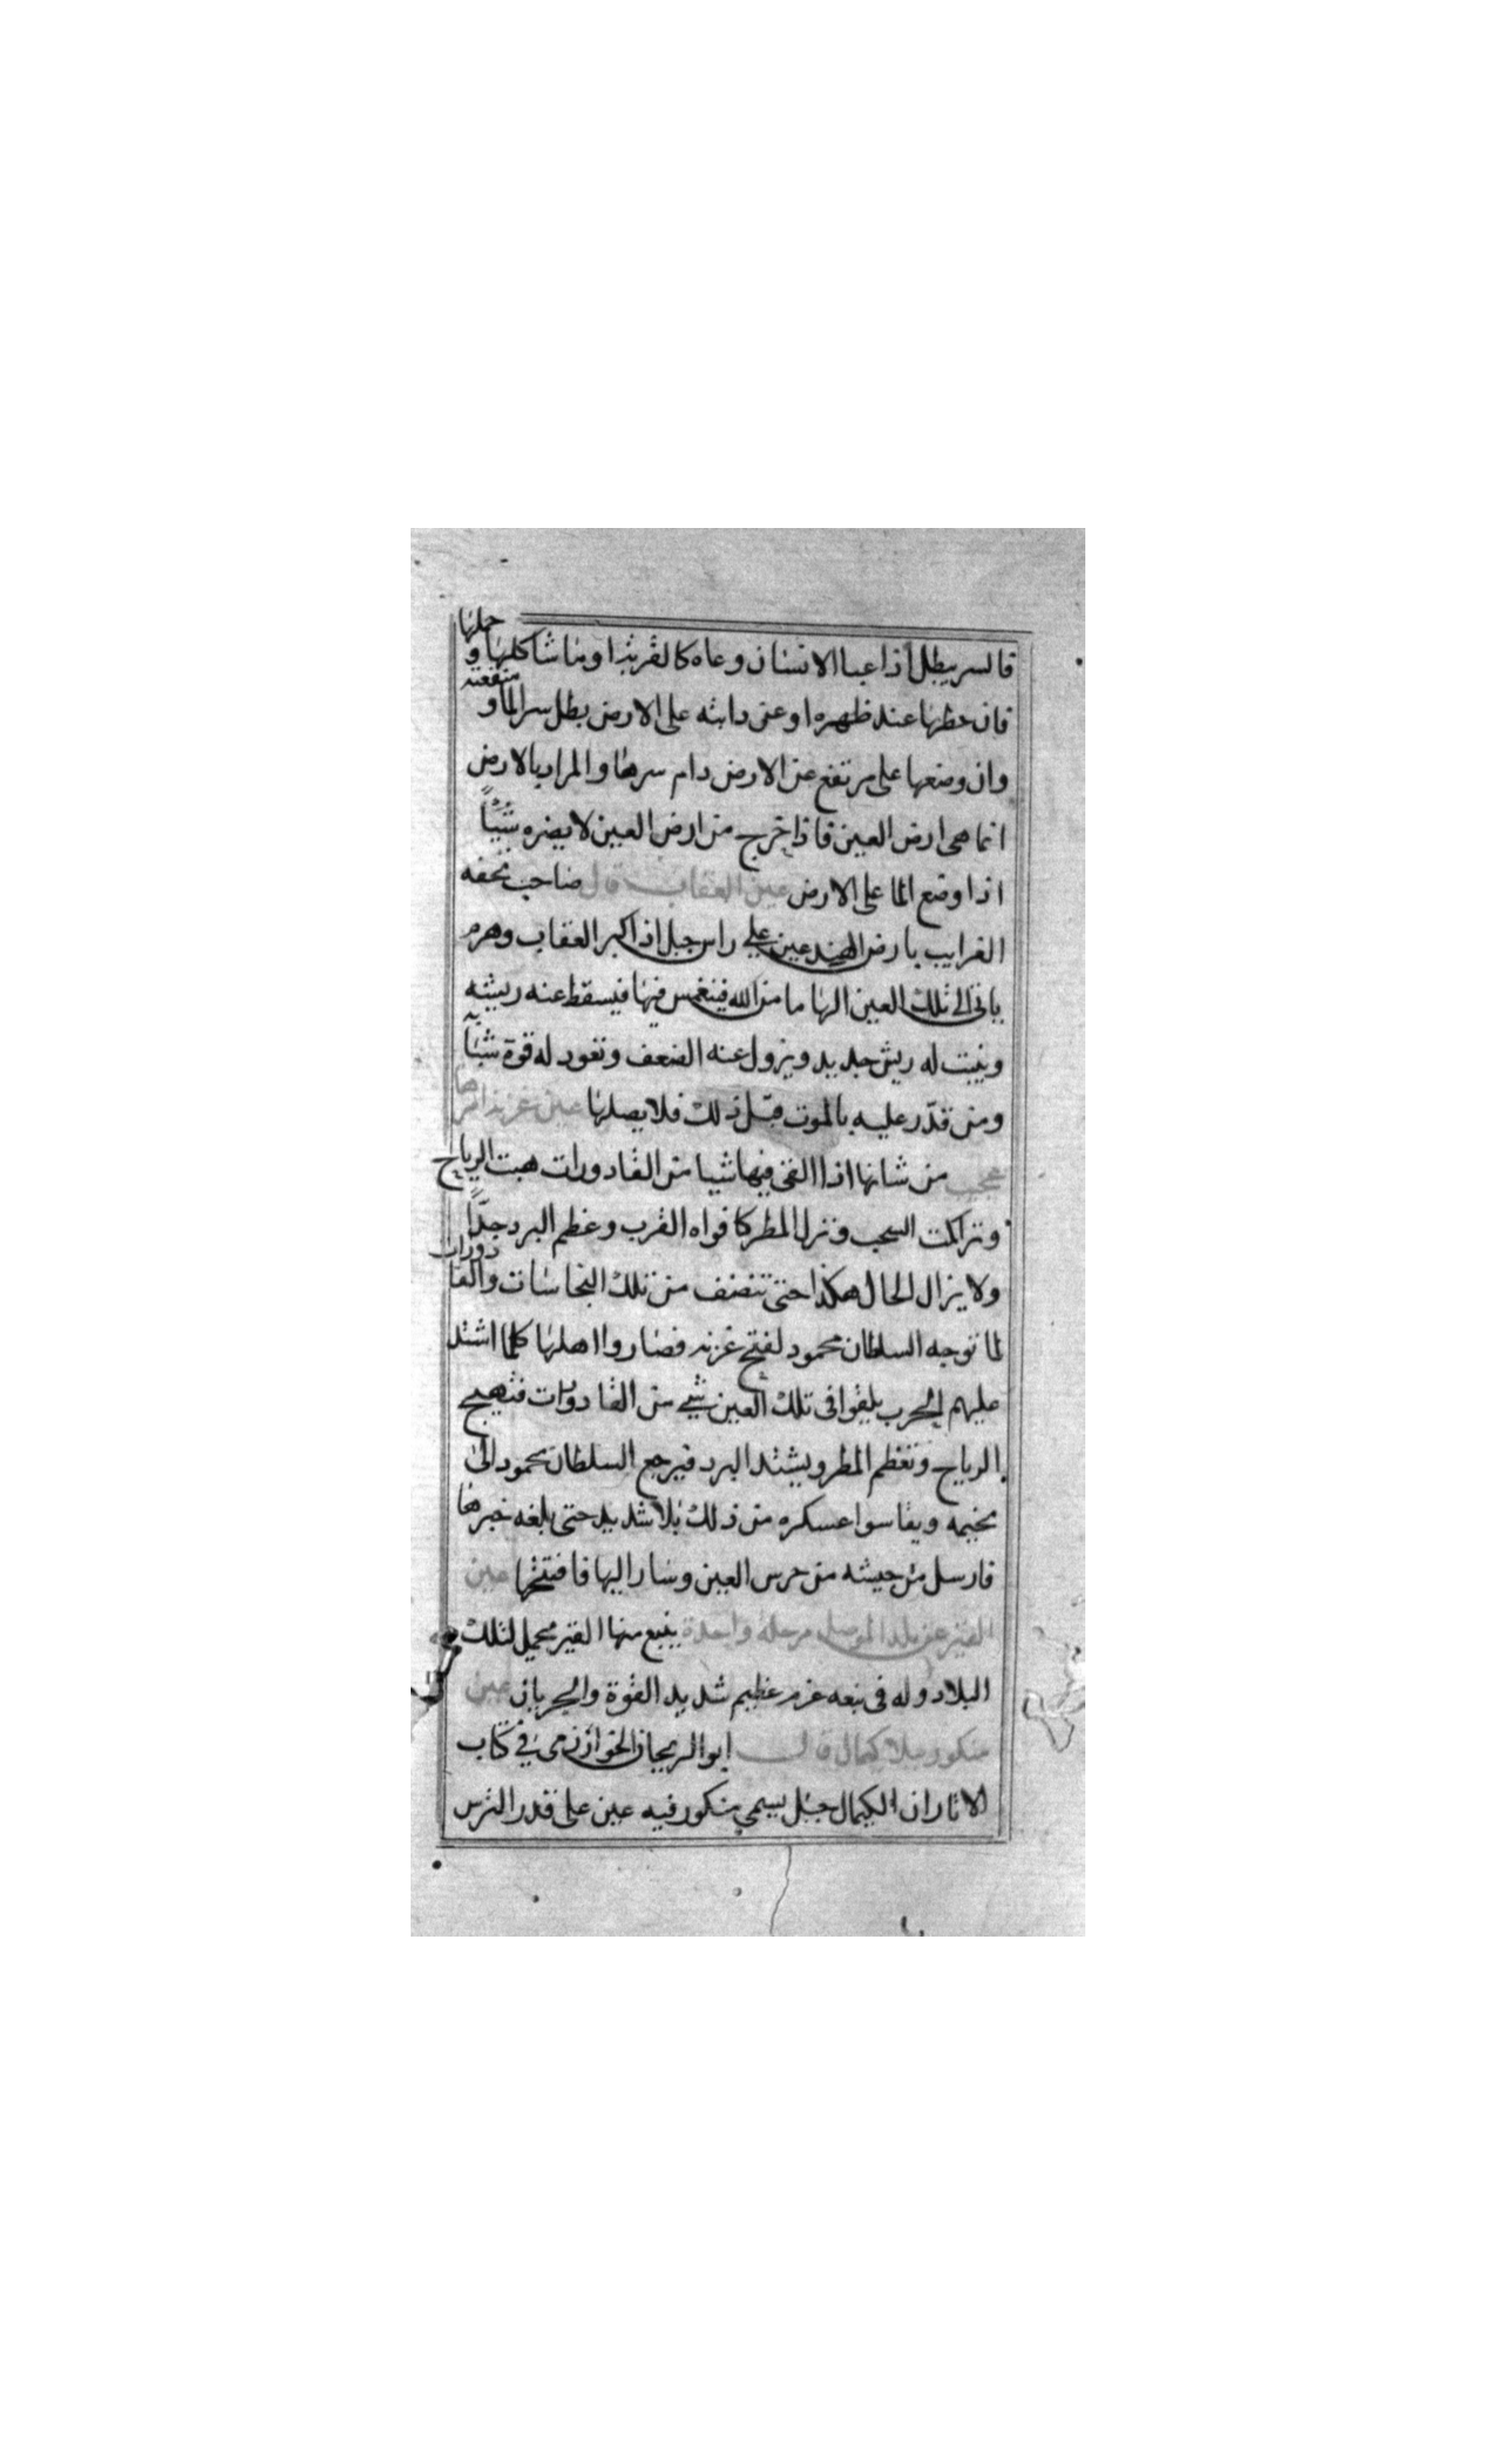 فالسر يبطل اذا عبا الانسان وعاه كالقربة او ما شاكلها و حملها
فان حطها عند ظهره او عن دابته على الارض بطل سر الما و منفعته
وان وضعها على مرتفع عن الارض دام سرها والمراد بالارض
انما هى ارض العين فاذا خرج من ارض العين لا يضره شيأ
اذا وضع الما على الارض عين العقاب قال صاحب تحفه
الغرايب بارض الهند عين على راس جبل اذا كبر العقاب وهرم
ياتى الى تلك العين الهاما من الله فينغمس فيها فيسقط عنه ريشه
وينبت له ريش جديد ويزول عنه الضعف وتعود له قوة شبابه
ومن قدر عليه بالموت قبل ذلك فلا يصلها عين غزنه امرها
عجيب من شانها اذا القى فيها شيا من القادورات هبت الرياح
وتراكمت السحب ونزل المطر كافواه القرب وعظم البرد جدًا
ولا يزال الحال هكذا حتى تنضف من تلك النجاسات والقادورات
لما توجه السلطان محمود لفتح غزنه فصاروا اهلها كلما اشتد
عليهم الحرب يلقوا فى تلك العين شيء من القادورات فتهيج
الرياح وتعظم المطر ويشتد البرد فيرجع السلطان محمود الى
مخيمه ويقاسوا عسكره من ذلك بلا شديد حتى بلغه خبرها
فارسل من جيشه من حرس العين وسار اليها فافتتحها عين
القير عن بلد الموصل مرحلة واحدة ينبع منها القير محمل لتلك
البلاد وله فى نبعه عزم عظيم شديد القوة والجريان عين
منكور ببلا كيمال قال ابو الريحان الخوارزمى فى كتاب
الاثار ان الكيمال جبل يسمى منكور فيه عين على قدر الترس